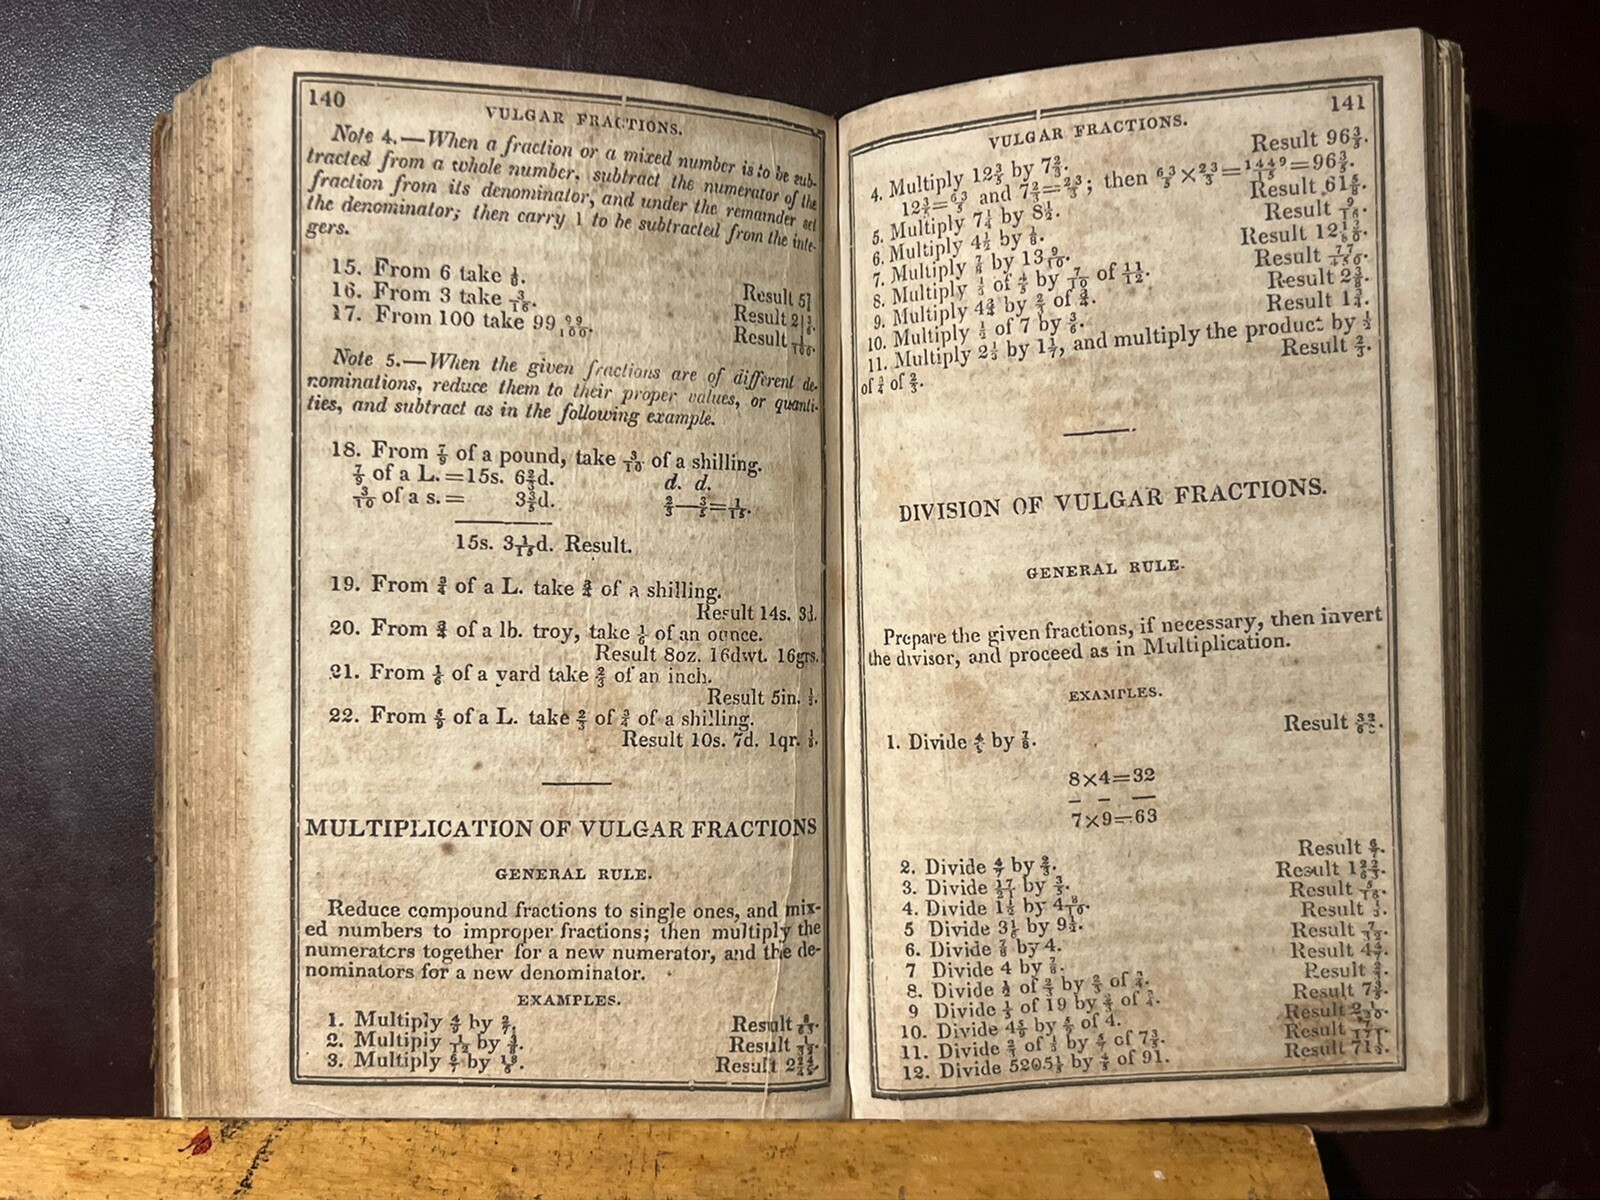 140
VULGAR FRACTIONS.
Note 4.—When a fraction or a mixed number is to be sub-
tracted from a whole number, subtract the numerator of the
fraction from its denominator, and under the remainder set
the denominator; then carry 1 to be subtracted from the inte-
gers.
15. From 6 take
16. From 3 take 3/16.
17. From 100 take 99 99/100.
Result
Result
Result 1/100.
Note 5.—When the given fractions are of different de-
nominations, reduce them to their proper values, or quanti-
ties, and subtract as in the following example.
18. From 7/9 of a pound, take 3/10 of a shilling.
7/9 of a L.=15s. 6 2/3d. d. d.
3/10 of a s.= 3 3/5d. 2/3—3/5=1/15.
15s. 3 1/15d. Result.
19. From 3/4 of a L. take 3/4 of a shilling.
Result 14s. 3d.
20. From 3/4 of a lb. troy, take 1/6 of an ounce.
Result 8oz. 16dwt. 16grs.
21. From 1/6 of a yard take 2/3 of an inch.
Result 5in. 1/3.
22. From 5/9 of a L. take 2/3 of 3/4 of a shilling.
Result 10s. 7d. 1qr. 1/3.
MULTIPLICATION OF VULGAR FRACTIONS
GENERAL RULE.
Reduce compound fractions to single ones, and mix-
ed numbers to improper fractions; then multiply the
numerators together for a new numerator, and the de-
nominators for a new denominator.
EXAMPLES.
1. Multiply 4/9 by 2/7. Result 8/63.
2. Multiply 1/12 by 3/8. Result 1/32.
3. Multiply 6/7 by Result
141
VULGAR FRACTIONS.
4. Multiply 12 3/5 by 7 2/3. Result 96 3/5.
12 3/5=63/5 and 7 2/3=23/3; then 63/5×23/3=1449/15=96 3/5.
5. Multiply 7 1/4 by 8 1/2. Result 61 5/8.
6. Multiply 4 1/2 by 1/8. Result 9/16.
7. Multiply by 13 9/10. Result
8. Multiply 1/3 of 4/5 by 7/10 of 11/12. Result 77/450.
9. Multiply 4 3/4 by 2/3 of 3/4. Result 2 3/8.
10. Multiply 1/2 of 7 by 3/6. Result 1 3/4.
11. Multiply 2 1/3 by 1 1/7, and multiply the product by 1/2
of 3/4 of 2/3. Result 2/3.
DIVISION OF VULGAR FRACTIONS.
GENERAL RULE.
Prepare the given fractions, if necessary, then invert
the divisor, and proceed as in Multiplication.
EXAMPLES.
1. Divide by 7/8. Result
8×4=32
— — —
7×9=63
2. Divide 4/7 by 2/3. Result 6/7.
3. Divide 17/21 by 3/5. Result 1 22/63.
4. Divide 1 1/2 by 4 8/10. Result 5/16.
5 Divide 3 1/6 by 9 1/2. Result 1/3.
6. Divide 7/8 by 4. Result 7/32.
7 Divide 4 by 7/8. Result 4 4/7.
8. Divide 1/2 of 2/3 by 2/3 of 3/4. Result 2/3.
9 Divide of 19 by of 3/4. Result
10. Divide 4 5/9 by of 4. Result
11. Divide of by 5/7 of 7 3/5. Result
12. Divide 5205 1/5 by 4/5 of 91. Result 71 1/2.